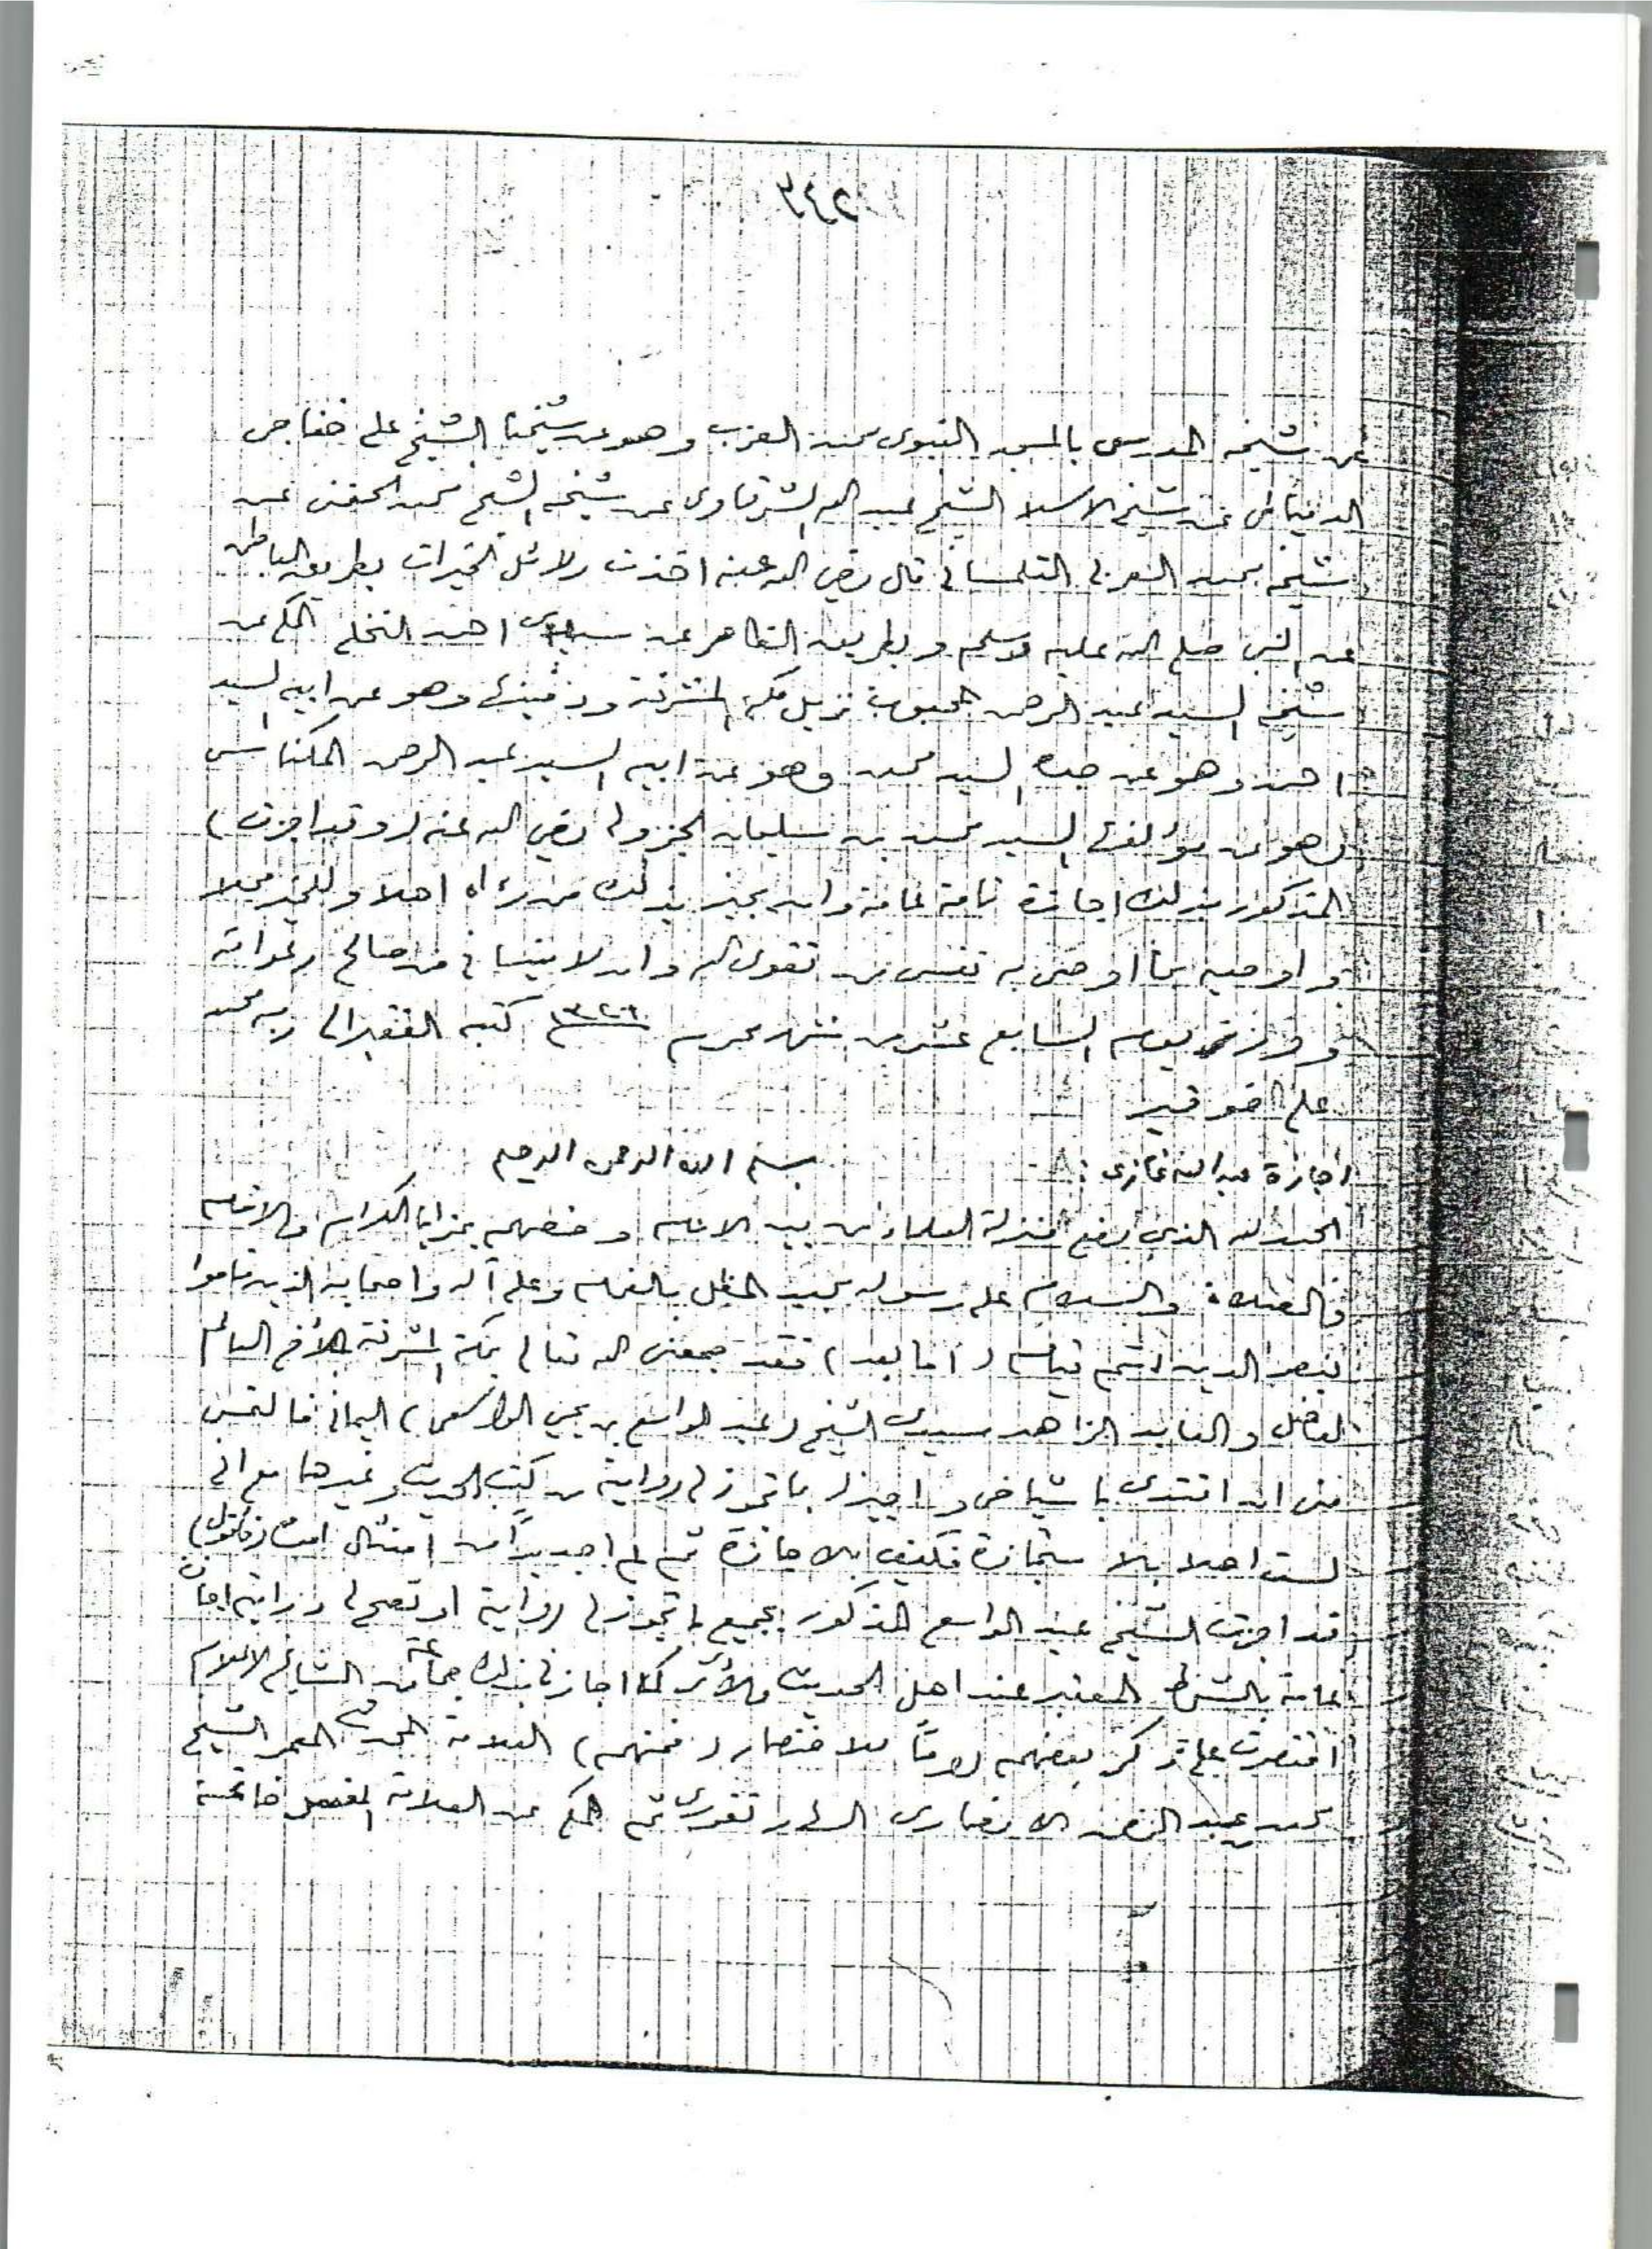 عن شيخه المدرس بالمسجد النبوي محمد العزب وهو عن شيخنا الشيخ علي خفاجي
الدمياطي عن شيخ الاسلام الشيخ عبد الله الشرقاوي عن شيخه الشيخ محمد الحفني عن
شيخه محمد المغربي التلمساني قال رضي الله عنه اخذت دلائل الخيرات بطريق الباطن
عن النبي صلى الله عليه وسلم وبطريق الظاهر عن سيدي احمد النخلي المكي عن
شيخه السيد عبد الرحمن المحبوب نزيل مكة المشرفة ودفينها وهو عن ابيه السيد
احمد وهو عن جده السيد محمد وهو عن ابيه السيد عبد الرحمن المكناسي
وهو عن مؤلفها السيد محمد بن سليمان الجزولي رضي الله عنه (وقد اجزت)
المذكور بذلك اجازة تامة عامة وان يجيز بذلك من رءاه اهلا وللخير محلا
و اوصيه بما اوصي به نفسي من تقوى الله وان لا ينساني من صالح دعواته
يوم السابع عشر من شهر محرم ١٣٢٦ كتبه الفقير الى ربه محمد
علي خوقير
اجازة عبد الله غازي :
بسم الله الرحمن الرحيم
الحمد لله الذي رفع منزلة العلماء من بين الانام وخصهم بمزايا الكرام والانعام
والصلاة والسلام على رسوله محمد المظلل بالغمام وعلى آله واصحابه الذين قاموا
بنصر الدين اتم قيام (اما بعد) فقد جمعني الله تعالى بمكة المشرفة بالأخ العالم
الفاضل والعابد الزاهد سيدي الشيخ (عبد الواسع بن يحيى الواسعي) اليماني فالتمس
مني ان اقتدي باشياخي و اجيزه بما تجوز لي روايته من كتب الحديث وغيرها مع اني
لست اهلا بالاستجازة فكيف بالاجازة ثم لم اجد بدًا من امتثال امره (فاقول)
قد اجزت الشيخ عبد الواسع المذكور بجميع ما تجوز لي روايته او تصح لي درايته اجازة
عامة بالشرط المعتبر عند اهل الحديث والأثر كما اجازني بذلك جماعة من المشايخ الاعلام
اقتصرت على ذكر بعضهم رومًا للاختصار (فمنهم) العلامة المحدث المعمر الشيخ
محمد عبد الانصاري ثم المكي عن العلامة المفضل خاتمة